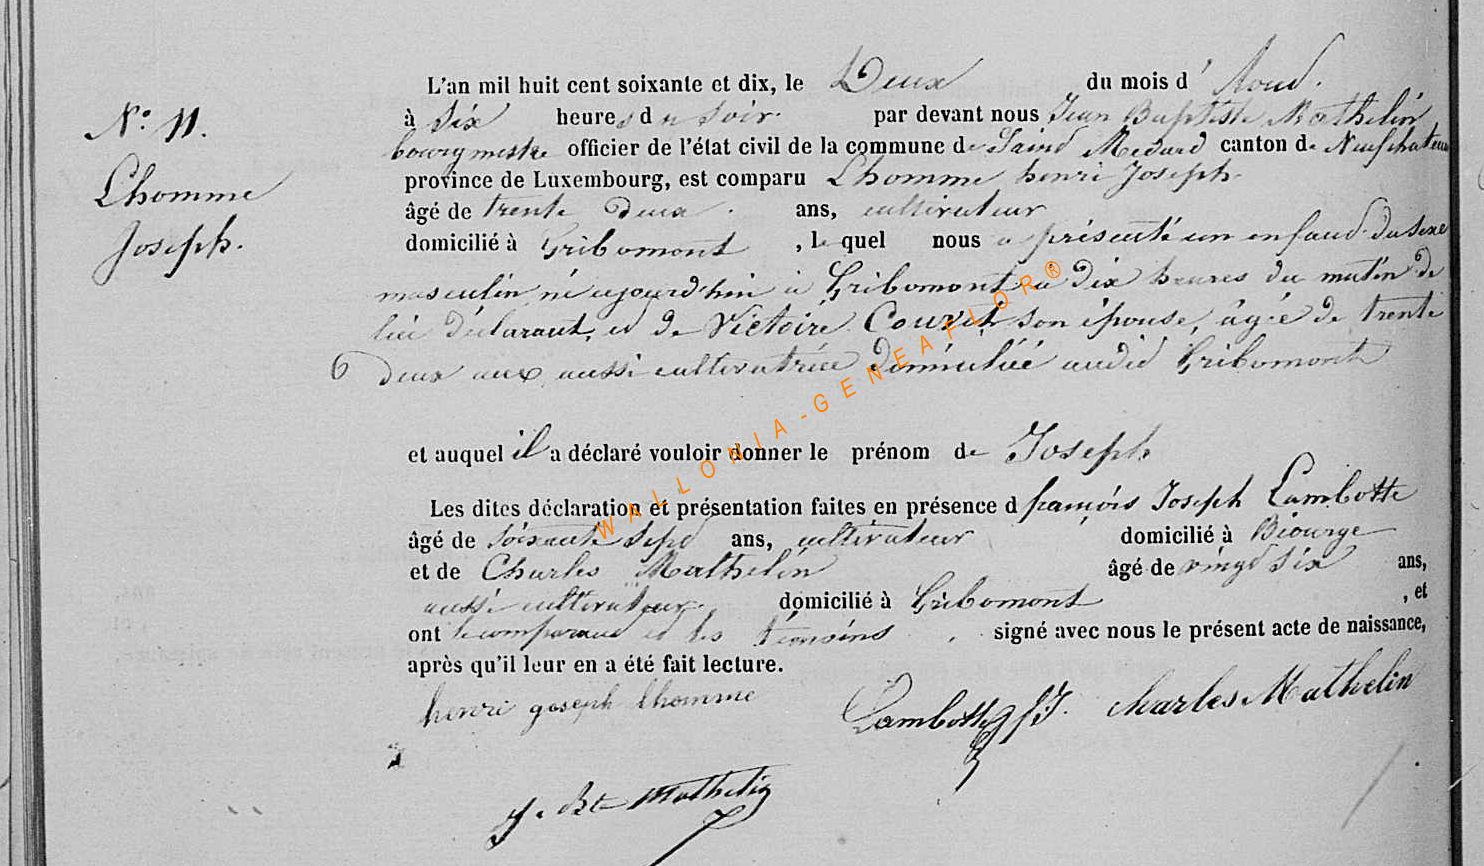 N.° 11.
Lhomme
Joseph.
L'an mil huit cent soixante et dix, le Deux du mois d' Aoud.
à Six heures du Soir. par devant nous Jean Baptiste Mathelin
bourgmestre officier de l'état civil de la commune de Saind Medard canton de Neufchateau
province de Luxembourg, est comparu Lhomme henri Joseph.
âgé de trente deux. ans, cultivateur
domicilié à Gribomont, le quel nous a présenté un enfand du sexe
masculin né aujourd'hui à Gribomont à dix heures du matin de
lui déclarant, et de Victoire Couvet son épouse, âgée de trente
deux ans, aussi cultivatrice domiciliée audid Gribomont
et auquel il a déclaré vouloir donner le prénom de Joseph
Les dites déclaration et présentation faites en présence d françois Joseph Lambotte
âgé de soixante sept ans, cultivateur domicilié à Biourge
et de Charles Mathelin âgé de vingd six ans,
aussi cultivateur. domicilié à Gribomont, et
ont le comparand et les témoins. signé avec nous le présent acte de naissance,
après qu'il leur en a été fait lecture.
henri joseph lhomme
Lambotte f J. charles Mathelin
J. Bte Mathelin
WALLONIA-GENEAFLOR®